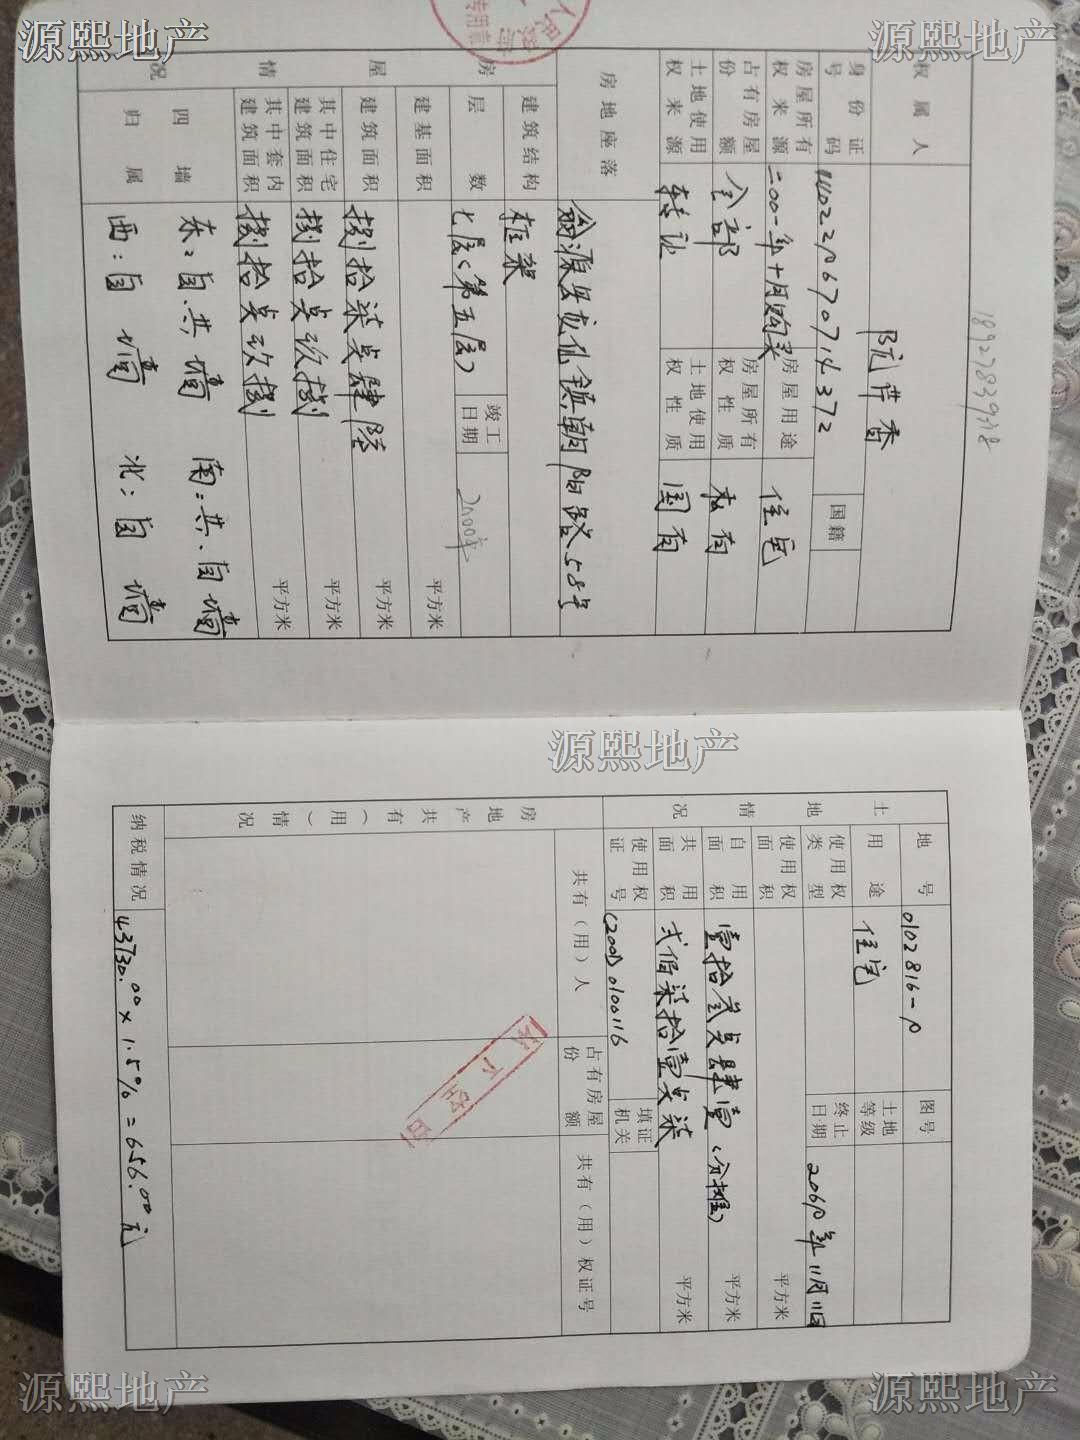 源熙地产
源熙地产
专用章
权属人
阮芹香
身份证号码
国籍
房屋所有权来源
二00一年十月购买
房屋用途
住宅
占有房屋份额
全部
房屋所有权性质
私有
土地使用权来源
转让
土地使用权性质
国有
房地座落
翁源县龙仙镇朝阳路58号
房屋情况
建筑结构
框架
层数
七层(第五层)
竣工日期
2000年
建基面积
平方米
建筑面积
捌拾柒点肆陆
平方米
其中住宅建筑面积
捌拾点玖捌
平方米
其中套内建筑面积
捌拾点玖捌
平方米
四墙归属
东:自.共墙
南:共、自墙
西:自墙
北:自墙
源熙地产
土地情况
地号
0102816-0
图号
用途
住宅
土地等级
使用权类型
终止日期
2060年11月11日
使用权面积
平方米
自用面积
壹拾贰点肆壹(分摊)
平方米
共用面积
贰佰柒拾壹点柒
平方米
使用权证号
(2001)0100116
填证机关
房地产共有(用)情况
共有(用)人
占有房屋份额
共有(用)权证号
纳税情况
43730.00×1.5%=656.00元
源熙地产
源熙地产